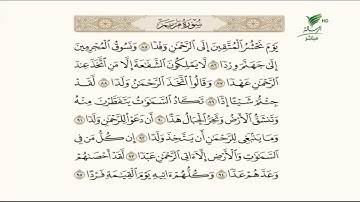 سُورَةُ مَرْيَمَ
HD
مباشر
يَوْمَ نَحْشُرُ الْمُتَّقِينَ إِلَى الرَّحْمَٰنِ وَفْدًا ٨٥ وَنَسُوقُ الْمُجْرِمِينَ
إِلَىٰ جَهَنَّمَ وِرْدًا ٨٦ لَّا يَمْلِكُونَ الشَّفَاعَةَ إِلَّا مَنِ اتَّخَذَ عِندَ
الرَّحْمَٰنِ عَهْدًا ٨٧ وَقَالُوا اتَّخَذَ الرَّحْمَٰنُ وَلَدًا ٨٨ لَّقَدْ
جِئْتُمْ شَيْئًا إِدًّا ٨٩ تَكَادُ السَّمَٰوَٰتُ يَتَفَطَّرْنَ مِنْهُ
وَتَنشَقُّ الْأَرْضُ وَتَخِرُّ الْجِبَالُ هَدًّا ٩٠ أَن دَعَوْا لِلرَّحْمَٰنِ وَلَدًا ٩١
وَمَا يَنبَغِي لِلرَّحْمَٰنِ أَن يَتَّخِذَ وَلَدًا ٩٢ إِن كُلُّ مَن فِي
السَّمَٰوَٰتِ وَالْأَرْضِ إِلَّا آتِي الرَّحْمَٰنِ عَبْدًا ٩٣ لَّقَدْ أَحْصَىٰهُمْ
وَعَدَّهُمْ عَدًّا ٩٤ وَكُلُّهُمْ ءَاتِيهِ يَوْمَ الْقِيَٰمَةِ فَرْدًا ٩٥